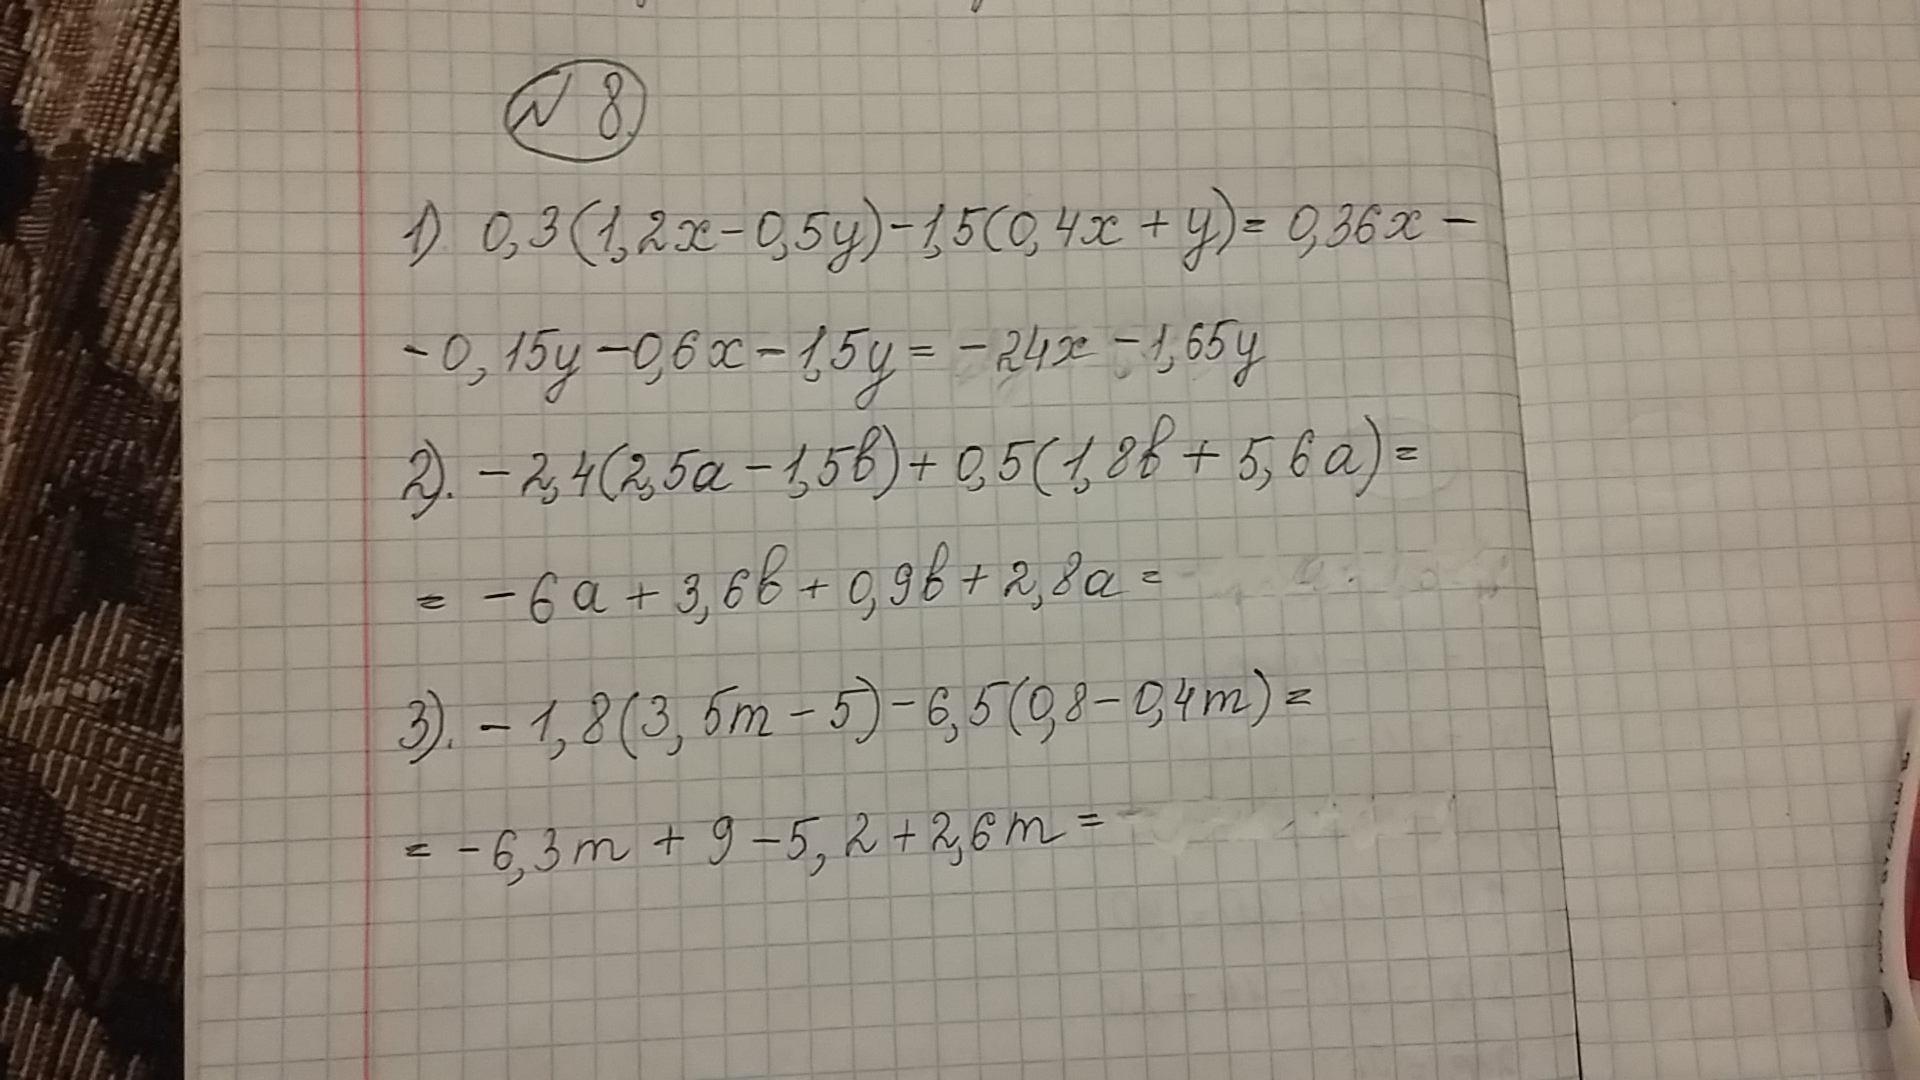 N 8
1) 0,3(1,2x-0,5y)-1,5(0,4x+y)= 0,36x -
-0,15y-0,6x-1,5y= -24x-1,65y
2). -2,4(2,5a-1,5b)+0,5(1,8b+5,6a)=
= -6a+3,6b+0,9b+2,8a=
3). -1,8(3,5m-5)-6,5(0,8-0,4m)=
= -6,3m+9-5,2+2,6m=